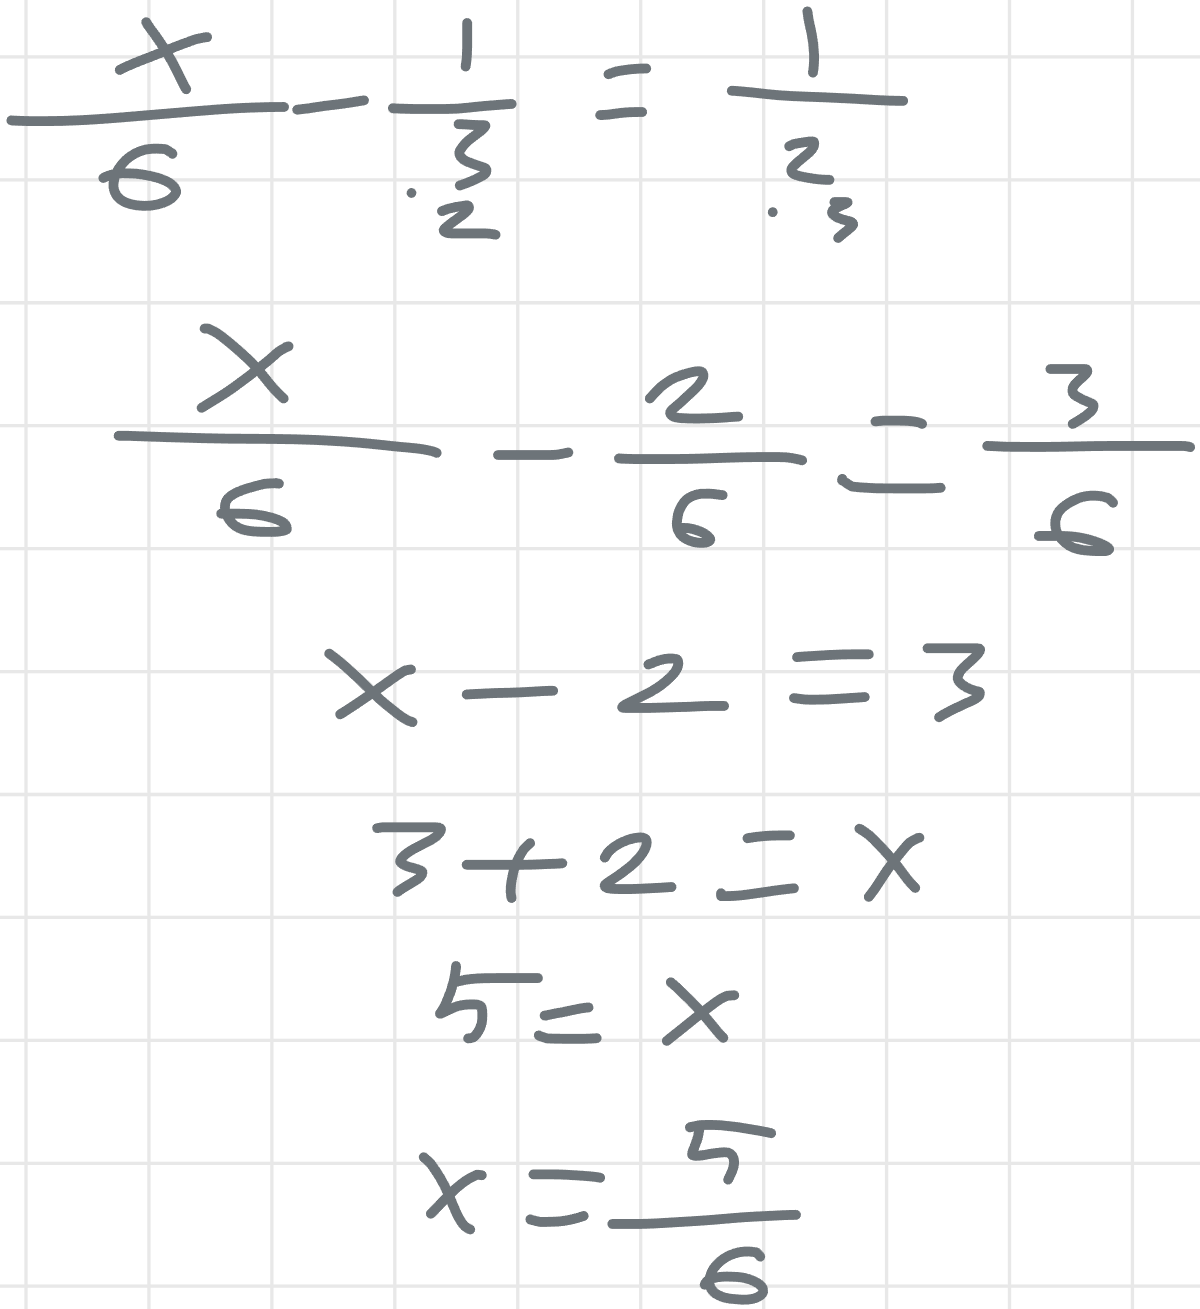 x/6 - 1/(3 · 2) = 1/(2 · 3)
x/6 - 2/6 = 3/6
x - 2 = 3
3 + 2 = x
5 = x
x = 5/6